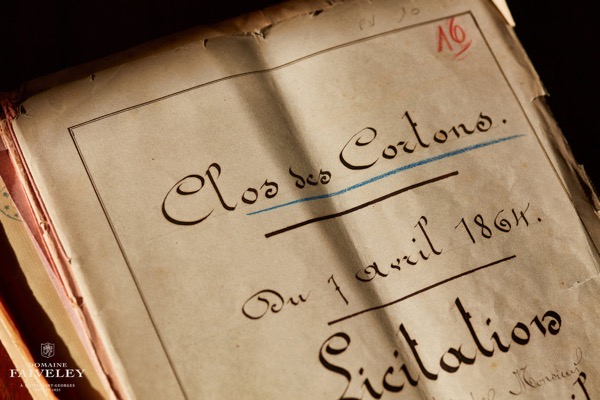 16
Clos des Cortons.
Du 7 avril 1864.
Licitation
DOMAINE
FAIVELEY